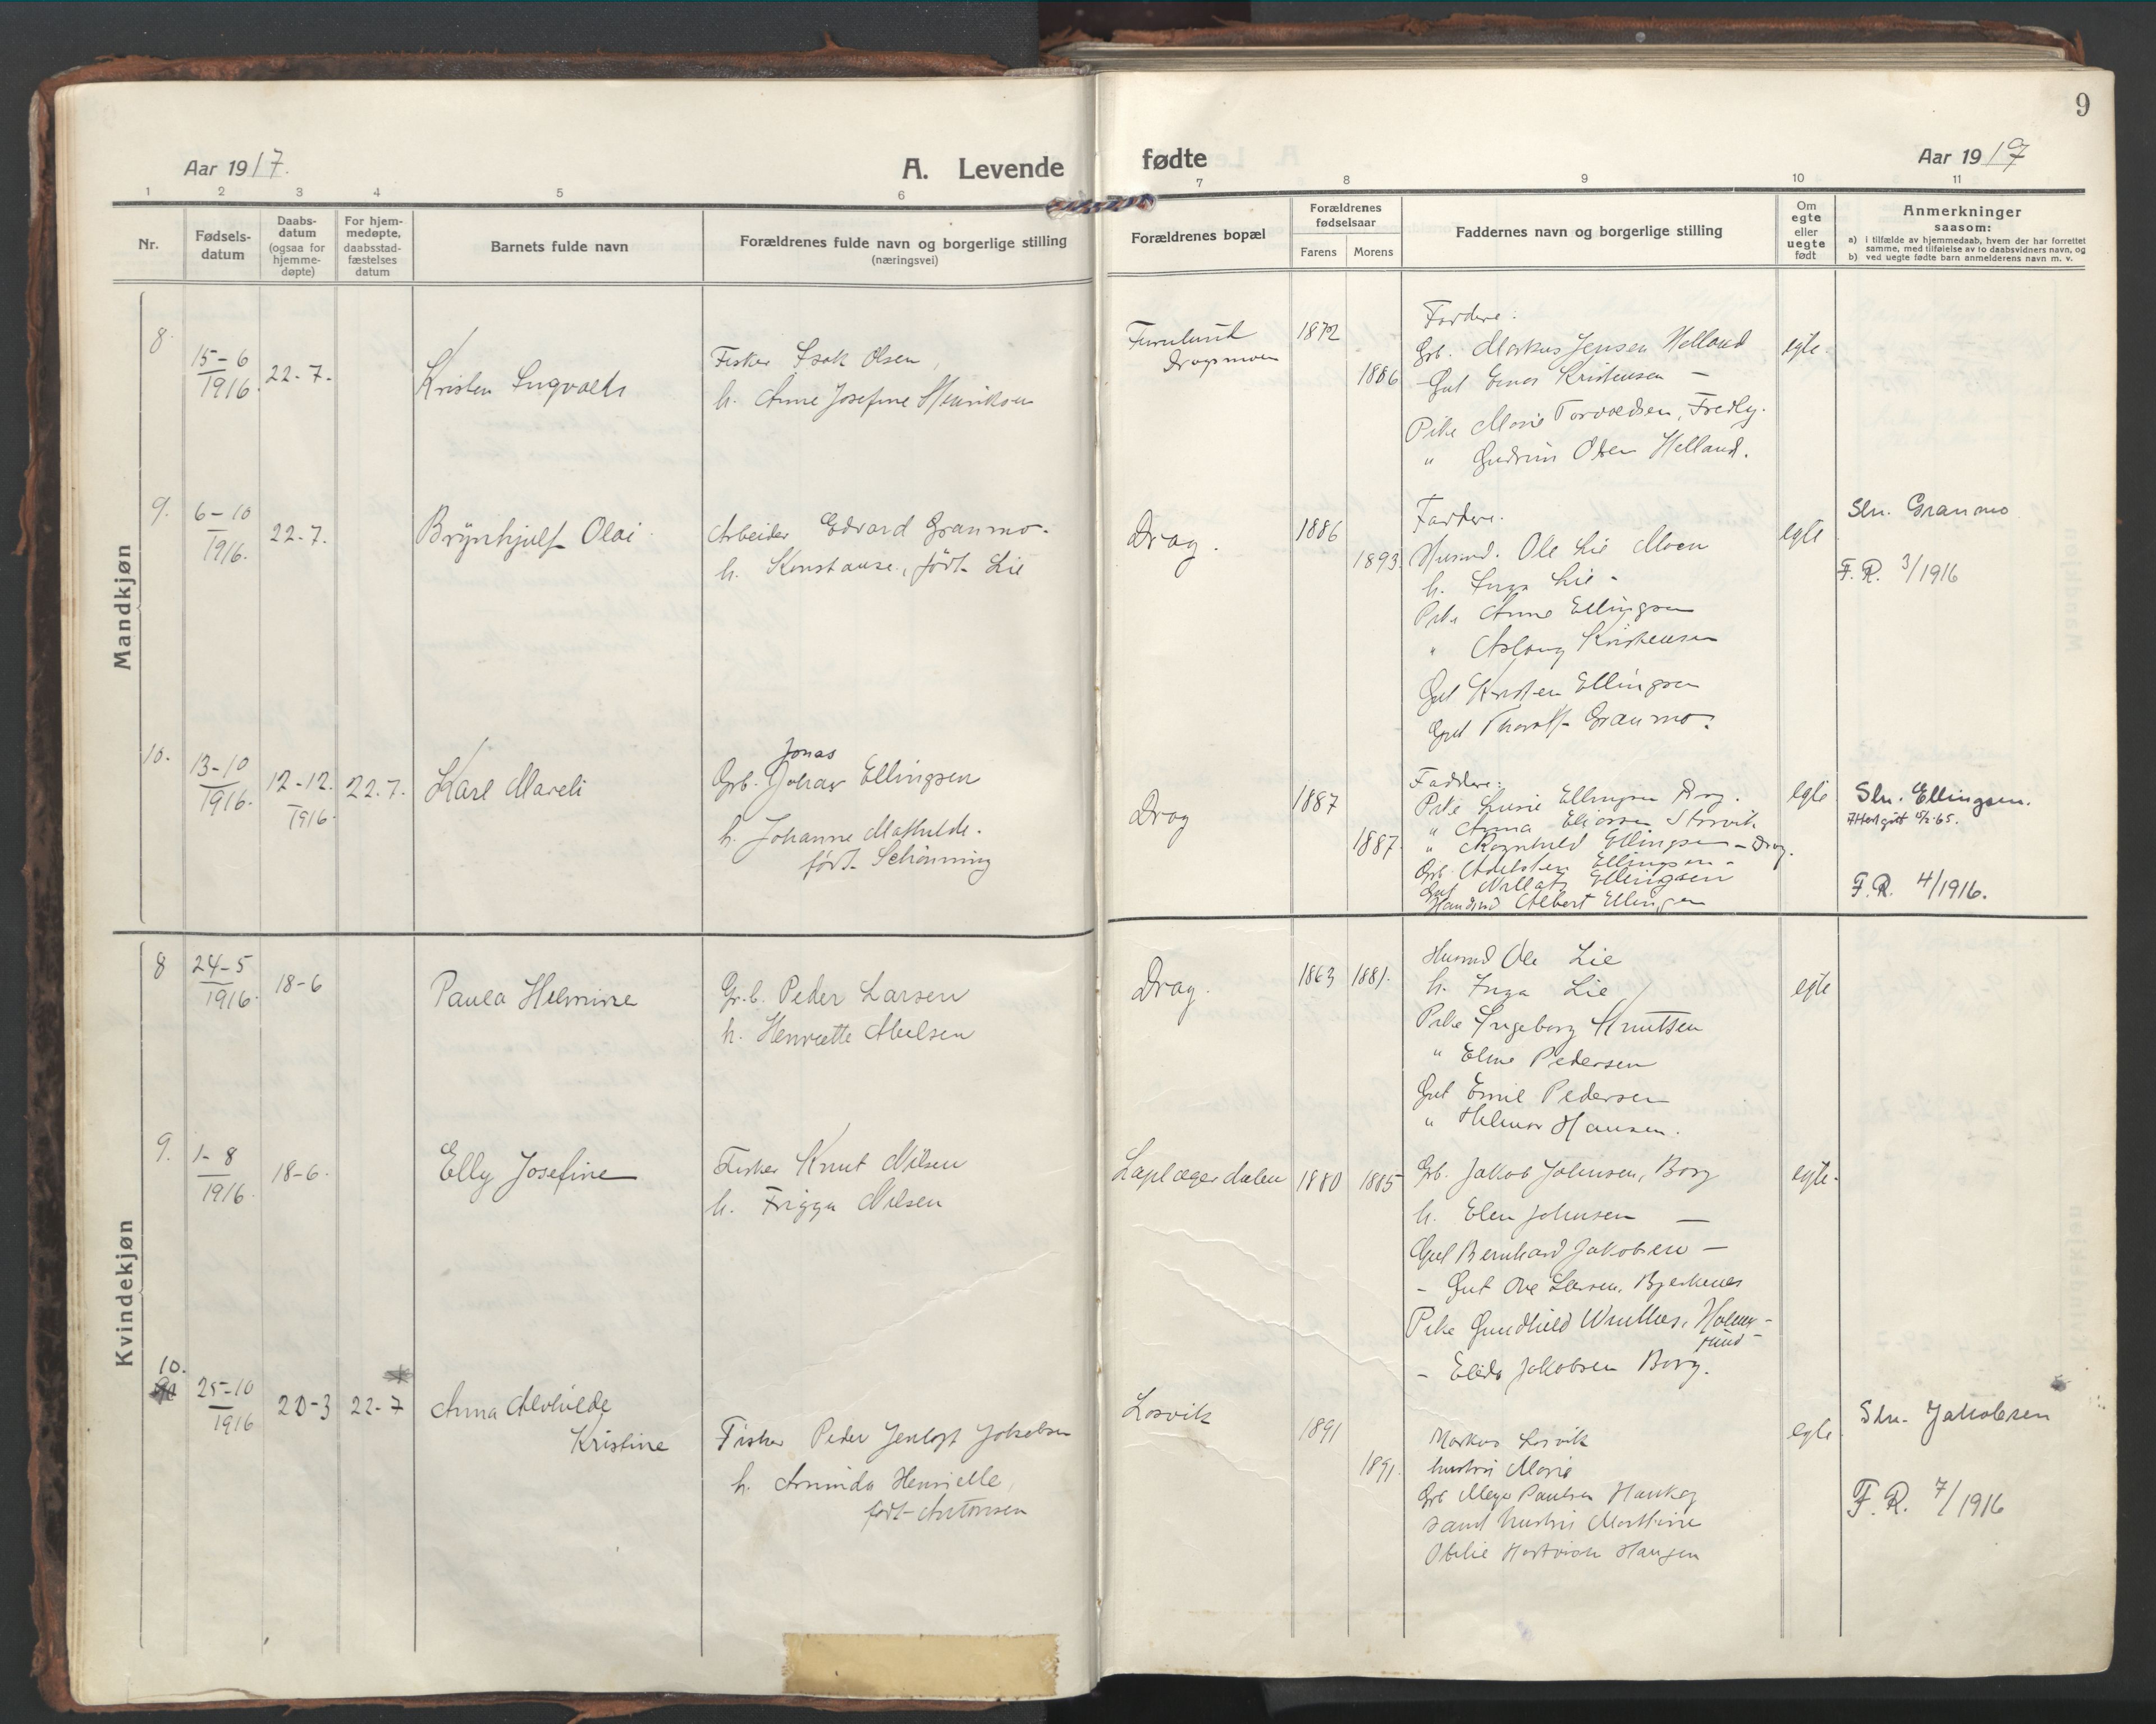 9
Aar 1917.
A. Levende fødte
Aar 1917
1 2 3 4 5 6 7 8 9 10 11
Nr.
Fødsels-
datum
Daabs-
datum
(ogsaa for
hjemme-
døpte)
For hjem-
medøpte,
daabsstad-
fæstelses
datum
Barnets fulde navn
Forældrenes fulde navn og borgerlige stilling
(næringsvei)
Forældrenes bopæl
Forældrenes
fødselsaar
Farens Morens
Faddernes navn og borgerlige stilling
Om
egte
eller
uegte
født
Anmerkninger
saasom:
a) i tilfælde av hjemmedaab, hvem der har forrettet
samme, med tilføielse av to daabsvidners navn, og
b) ved uegte fødte barn anmelderens navn m. v.
Mandkjøn
8.
15-6
1916.
22-7.
Kristen Ingvald
Fisker Isak Olsen,
h. Anne Josefine Henriksen
Furulund
Dragsmoen
1872
1886
Faddere:
Grb. Markus Jensen Helland
Gut Einar Kristensen —
Pike Marie Torvaldsen, Fredly.
" Gudrun Olsen Helland.
egte
9.
6-10
1916.
22-7.
Brynhjulf Olai
Arbeider Edvard Granmo.
h. Konstanse, født Lie
Drag.
1886
1893.
Faddere.
Husmd. Ole Lie Moen
h. Inga Lie -
Pike Anne Ellingsen
" Aslaug Kristensen
Gut Kristen Ellingsen
Gut Thoralf Granmo.
egte
Sln. Granmo
F. R. 3/1916
10.
13-10
1916.
12-12.
1916.
22.7.
Karl Mareli
Jonas
Grb. Johan Ellingsen
h. Johanne Mathilde.
født Schønning
Drag
1887
1887.
Faddere:
Pike Ellingsen Drag.
" Anna Eliassen Storvik
" Ragnhild Ellingsen - Drag.
Grb. Adelsten Ellingsen -
Gut Ellingsen
Albert Ellingsen
egte
Sln. Ellingsen.
F. R. 4/1916.
Kvindekjøn
8
24-5
1916.
18-6
Paula Helmine
Gr.b. Peder Larsen
h. Henriette Abelsen
Drag.
1863 1881.
Husmd Ole Lie
h. Inga Lie
Pike Ingeborg Knutsen
" Eline Pedersen
Gut Emil Pedersen
" Helmer Hansen.
egte
9.
1-8
1916.
18-6.
Elly Josefine
Fisker Knut Nilsen
h. Frigga Nilsen
Laplægerdalen
1880 1885
Grb. Jakob Johnsen, Borg
h. Elen Johnsen —
Gut Bernhard Jakobsen —
- Gut Ove Larsen, Bjerkenes
Pike Gundhild
- Elida Jakobsen Borg.
egte.
10.
25-10
1916
20-3
22-7
Anna Alvhilde
Kristine
Fisker Peder Jakobsen
h. Arminda Henrielle,
født Antonsen
Losvik
1891
1891.
Markus Losvik
hustru Marie
Grb Meyer Paulsen
samt hustru
Otelie Hartvick Haugen
egte
Sln. Jakobsen
F. R. 7/1916